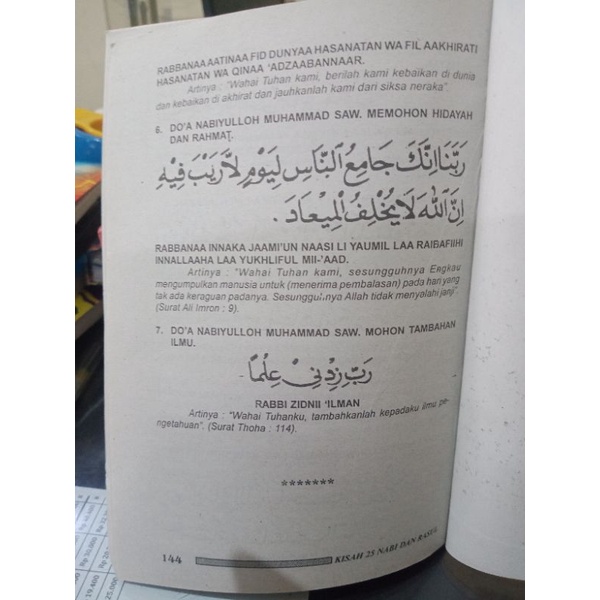 RABBANAA AATINAA FID DUNYAA HASANATAN WA FIL AAKHIRATI
HASANATAN WA QINAA 'ADZAABANNAAR.
Artinya : "Wahai Tuhan kami, berilah kami kebaikan di dunia
dan kebaikan di akhirat dan jauhkanlah kami dari siksa neraka".
6. DO'A NABIYULLOH MUHAMMAD SAW. MEMOHON HIDAYAH
DAN RAHMAT.
رَبَّنَا اِنَّكَ جَامِعُ النَّاسِ لِيَوْمٍ لَارَيْبَ فِيْهِ
اِنَّ اللّٰهَ لَا يُخْلِفُ الْمِيْعَادَ.
RABBANAA INNAKA JAAMI'UN NAASI LI YAUMIL LAA RAIBAFIIHI
INNALLAAHA LAA YUKHLIFUL MII-'AAD.
Artinya : "Wahai Tuhan kami, sesungguhnya Engkau
mengumpulkan manusia untuk (menerima pembalasan) pada hari yang
tak ada keraguan padanya. Sesungguhnya Allah tidak menyalahi janji".
(Surat Ali Imron : 9).
7. DO'A NABIYULLOH MUHAMMAD SAW. MOHON TAMBAHAN
ILMU.
رَبِّ زِدْنِيْ عِلْمًا.
RABBI ZIDNII 'ILMAN
Artinya : "Wahai Tuhanku, tambahkanlah kepadaku ilmu pe-
ngetahuan". (Surat Thoha : 114).
*******
144 KISAH 25 NABI DAN RASUL